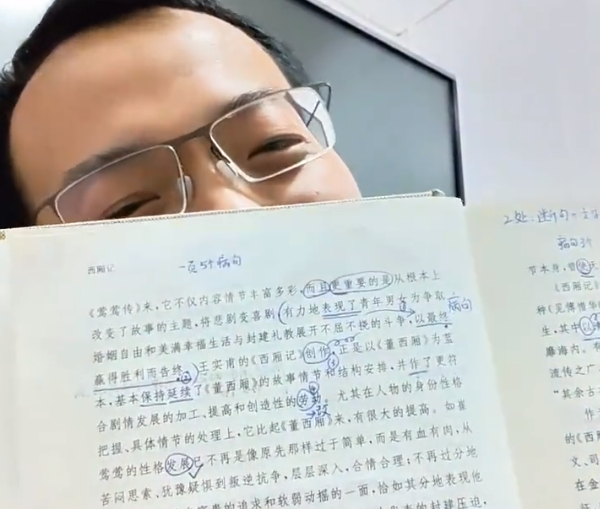 西厢记
一页5个病句
《莺莺传》来，它不仅内容情节丰富多彩，而且更重要的是从根本上
改变了故事的主题，将悲剧变喜剧，有力地表现了青年男女为争取
病句
婚姻自由和美满幸福生活与封建礼教展开不屈不挠的斗争，以最终
赢得胜利而告终。王实甫的《西厢记》创作，正是以《董西厢》为蓝
本，基本保持延续了《董西厢》的故事情节和结构安排，并作了更符
合剧情发展的加工、提高和创造性的劳动。尤其在人物的身份性格
把握、具体情节的处理上，它比起《董西厢》来，有很大的提高。如崔
莺莺的性格发展已不再是像原先那样过于简单，而是有血有肉，从
苦闷思索、犹豫疑惧到叛逆抗争，层层深入，合情合理；不再过分地
的追求和软弱动摇的一面，恰如其分地表现他
的封建压迫，
2处
病句
节本月，曾
《西厢记》
种《见
生，其中以
靡海内。有
流传之广
“其余古
作
的《西
文、司
在金